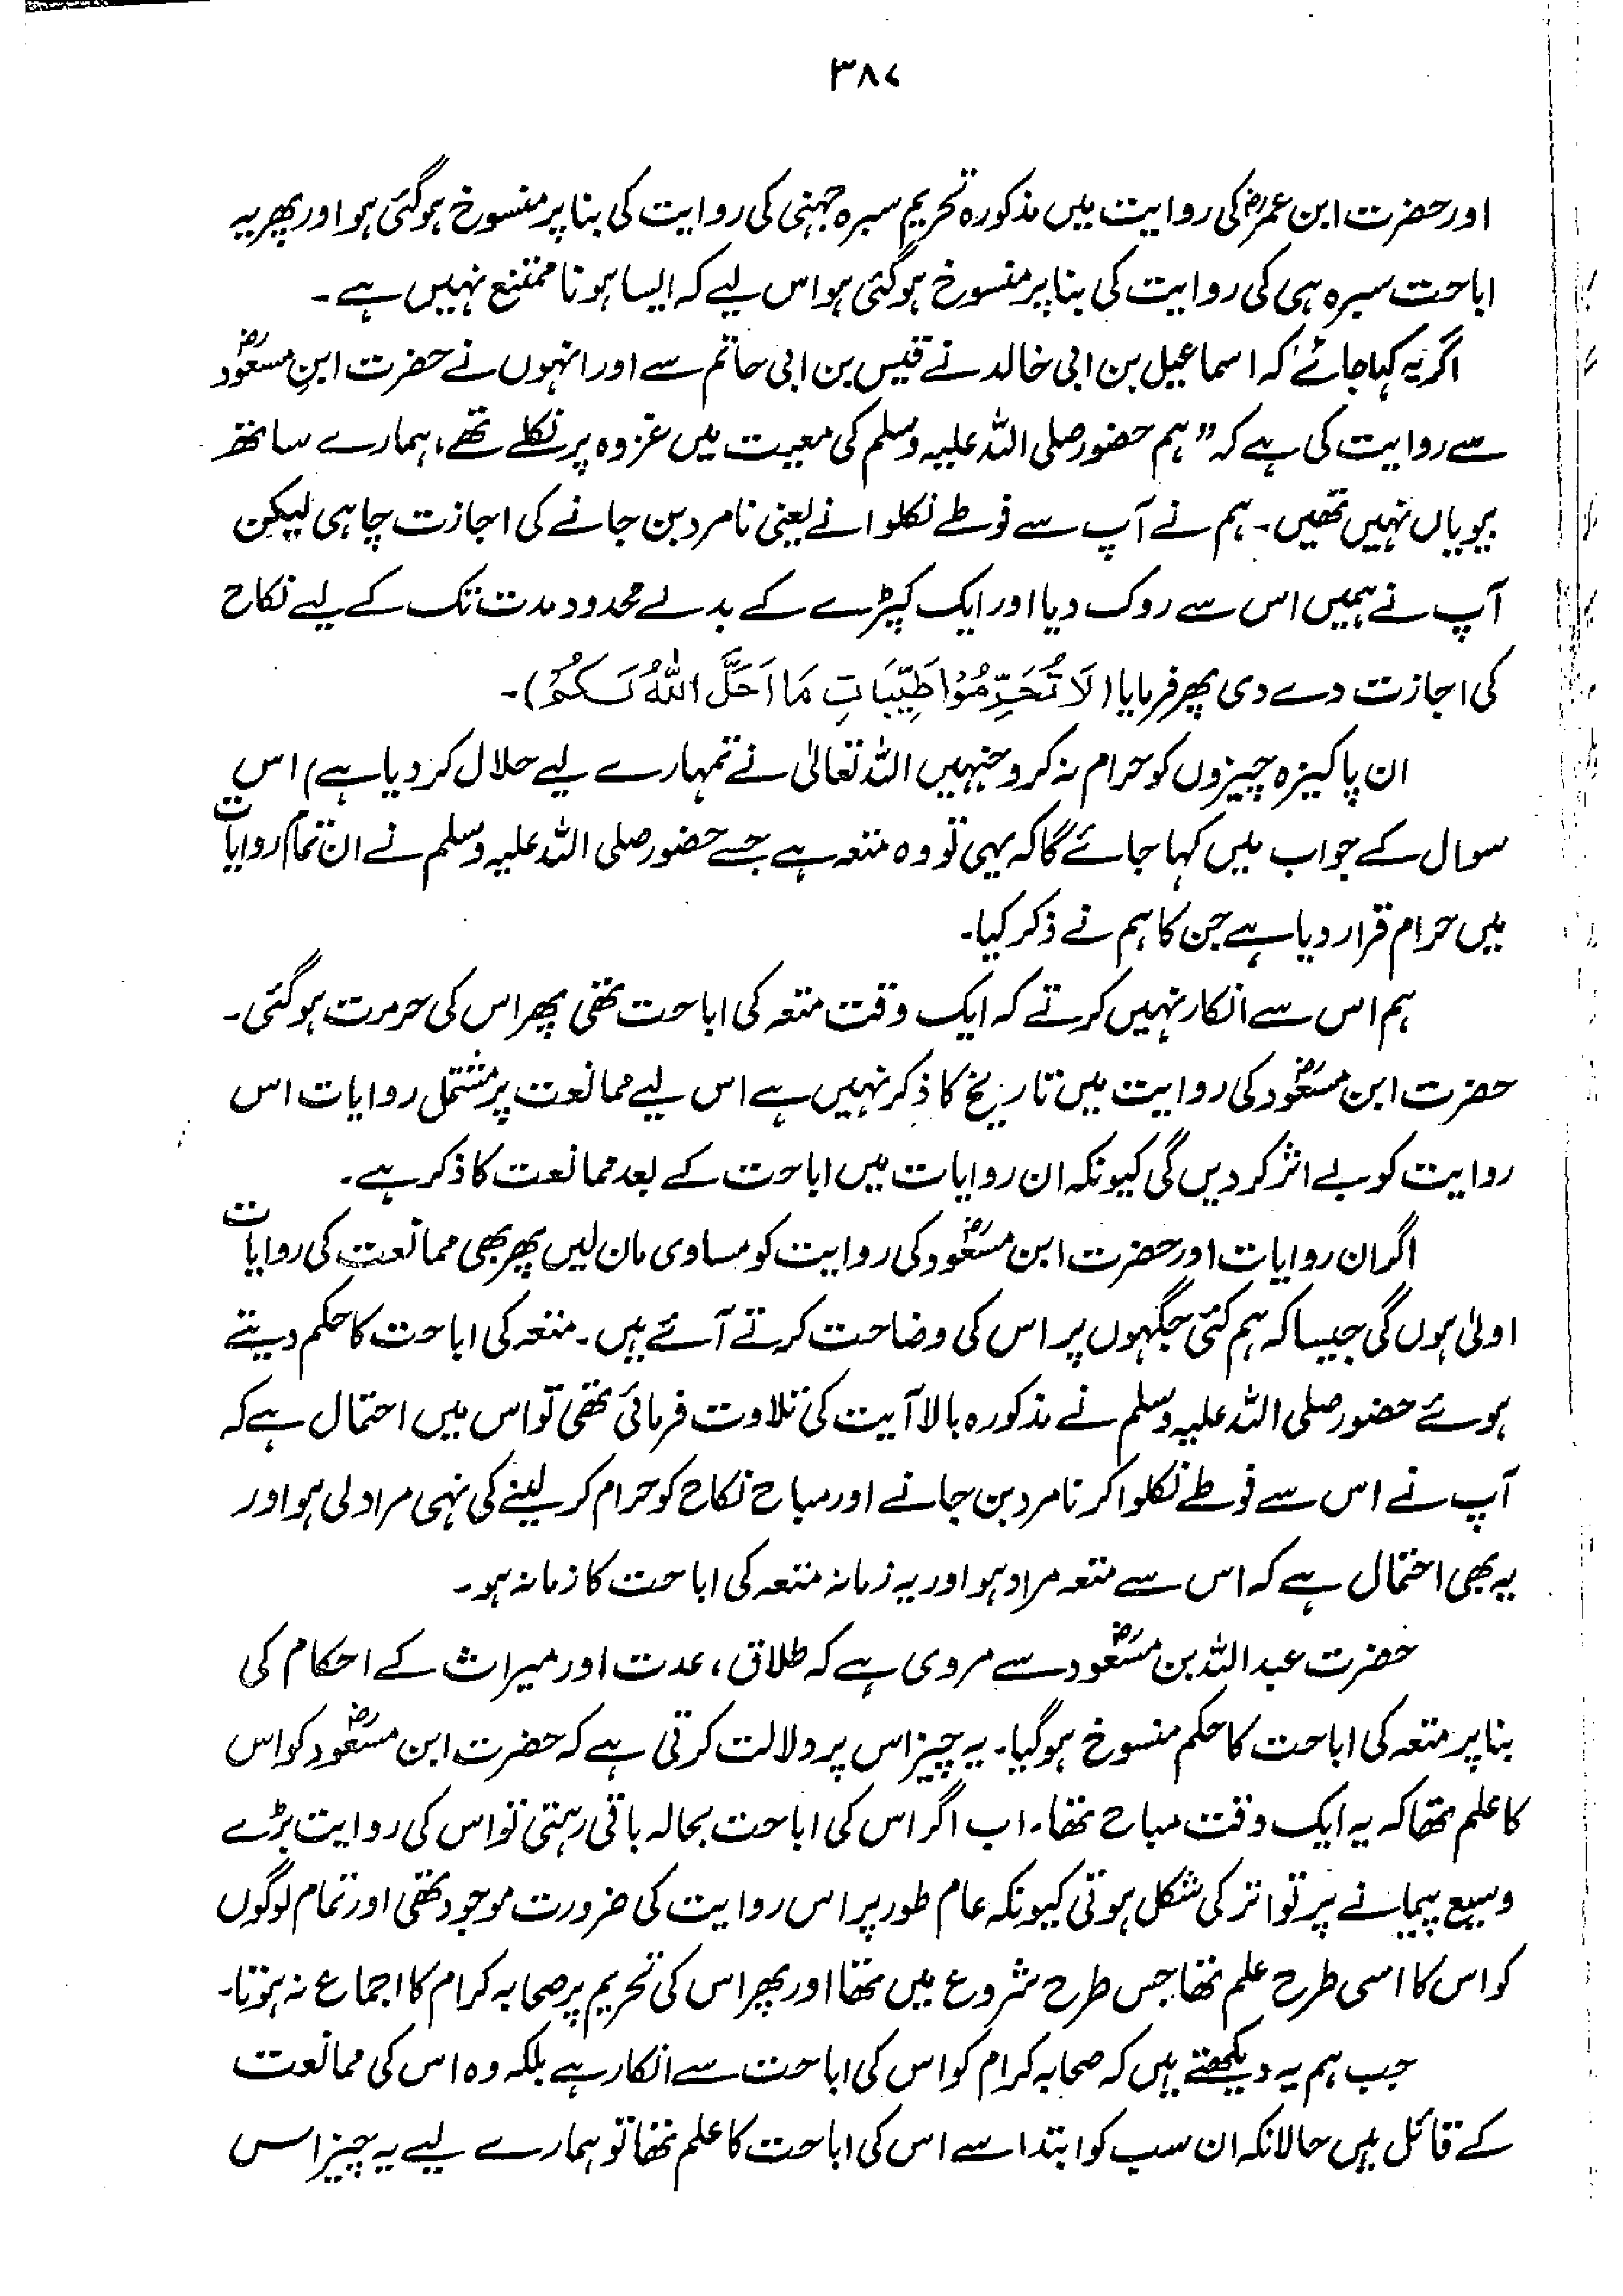 ۳۸۷
اور حضرت ابن عمرؓ کی روایت میں مذکورہ تحریم سبرہ جہنی کی روایت کی بنا پر منسوخ ہوگئی ہو اور پھر یہ
اباحت سبرہ ہی کی روایت کی بنا پر منسوخ ہوگئی ہو اس لیے کہ ایسا ہونا ممتنع نہیں ہے۔
اگر یہ کہا جائے کہ اسماعیل بن ابی خالد نے قیس بن ابی حاتم سے اور انہوں نے حضرت ابنِ مسعودؓ
سے روایت کی ہے کہ "ہم حضور صلی اللہ علیہ وسلم کی معیت میں غزوہ پر نکلے تھے، ہمارے ساتھ
بیویاں نہیں تھیں۔ ہم نے آپ سے فوطے نکلوانے یعنی نامرد بن جانے کی اجازت چاہی لیکن
آپ نے ہمیں اس سے روک دیا اور ایک کپڑے کے بدلے محدود مدت تک کے لیے نکاح
کی اجازت دے دی پھر فرمایا (لَا تُحَرِّمُوْا طَيِّبَاتِ مَا اَحَلَّ اللّٰهُ لَكُمْ)۔
ان پاکیزہ چیزوں کو حرام نہ کرو جنہیں اللہ تعالیٰ نے تمہارے لیے حلال کر دیا ہے) اس
سوال کے جواب میں کہا جائے گا کہ یہی تو وہ متعہ ہے جسے حضور صلی اللہ علیہ وسلم نے ان تمام روایات
میں حرام قرار دیا ہے جن کا ہم نے ذکر کیا۔
ہم اس سے انکار نہیں کرتے کہ ایک وقت متعہ کی اباحت تھی پھر اس کی حرمت ہوگئی۔
حضرت ابن مسعودؓ کی روایت میں تاریخ کا ذکر نہیں ہے اس لیے ممانعت پر مشتمل روایات اس
روایت کو بے اثر کر دیں گی کیونکہ ان روایات میں اباحت کے بعد ممانعت کا ذکر ہے۔
اگر ان روایات اور حضرت ابن مسعودؓ کی روایت کو مساوی مان لیں پھر بھی ممانعت کی روایات
اولیٰ ہوں گی جیسا کہ ہم کئی جگہوں پر اس کی وضاحت کرتے آئے ہیں۔ متعہ کی اباحت کا حکم دیتے
ہوئے حضور صلی اللہ علیہ وسلم نے مذکورہ بالا آیت کی تلاوت فرمائی تھی تو اس میں احتمال ہے کہ
آپ نے اس سے فوطے نکلوا کر نامرد بن جانے اور مباح نکاح کو حرام کر لینے کی نہی مراد لی ہو اور
یہ بھی احتمال ہے کہ اس سے متعہ مراد ہو اور یہ زمانہ متعہ کی اباحت کا زمانہ ہو۔
حضرت عبداللہ بن مسعودؓ سے مروی ہے کہ طلاق، عدت اور میراث کے احکام کی
بنا پر متعہ کی اباحت کا حکم منسوخ ہوگیا۔ یہ چیز اس پر دلالت کرتی ہے کہ حضرت ابن مسعودؓ کو اس
کا علم تھا کہ یہ ایک وقت مباح تھا۔ اب اگر اس کی اباحت بحالہ باقی رہتی تو اس کی روایت بڑے
وسیع پیمانے پر تواتر کی شکل ہوتی کیونکہ عام طور پر اس روایت کی ضرورت موجود تھی اور تمام لوگوں
کو اس کا اسی طرح علم تھا جس طرح شروع میں تھا اور پھر اس کی تحریم پر صحابہ کرام کا اجماع نہ ہوتا۔
جب ہم یہ دیکھتے ہیں کہ صحابہ کرام کو اس کی اباحت سے انکار ہے بلکہ وہ اس کی ممانعت
کے قائل ہیں حالانکہ ان سب کو ابتدا سے اس کی اباحت کا علم تھا تو ہمارے لیے یہ چیز اس